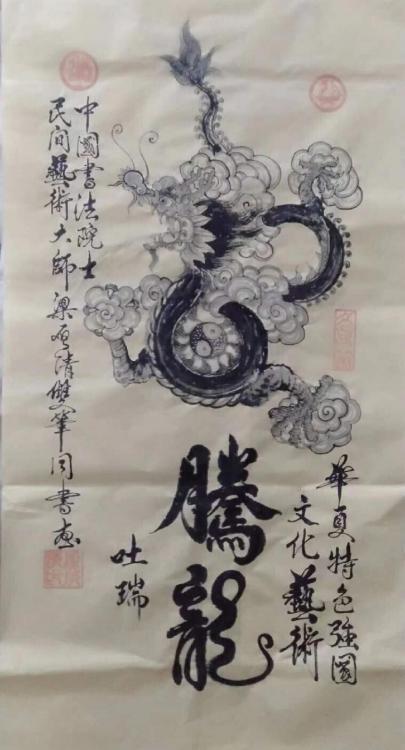 華夏特色強國
文化藝術
騰龍
吐瑞
中國書法院士
民间藝術大師梁清雙筆同書画